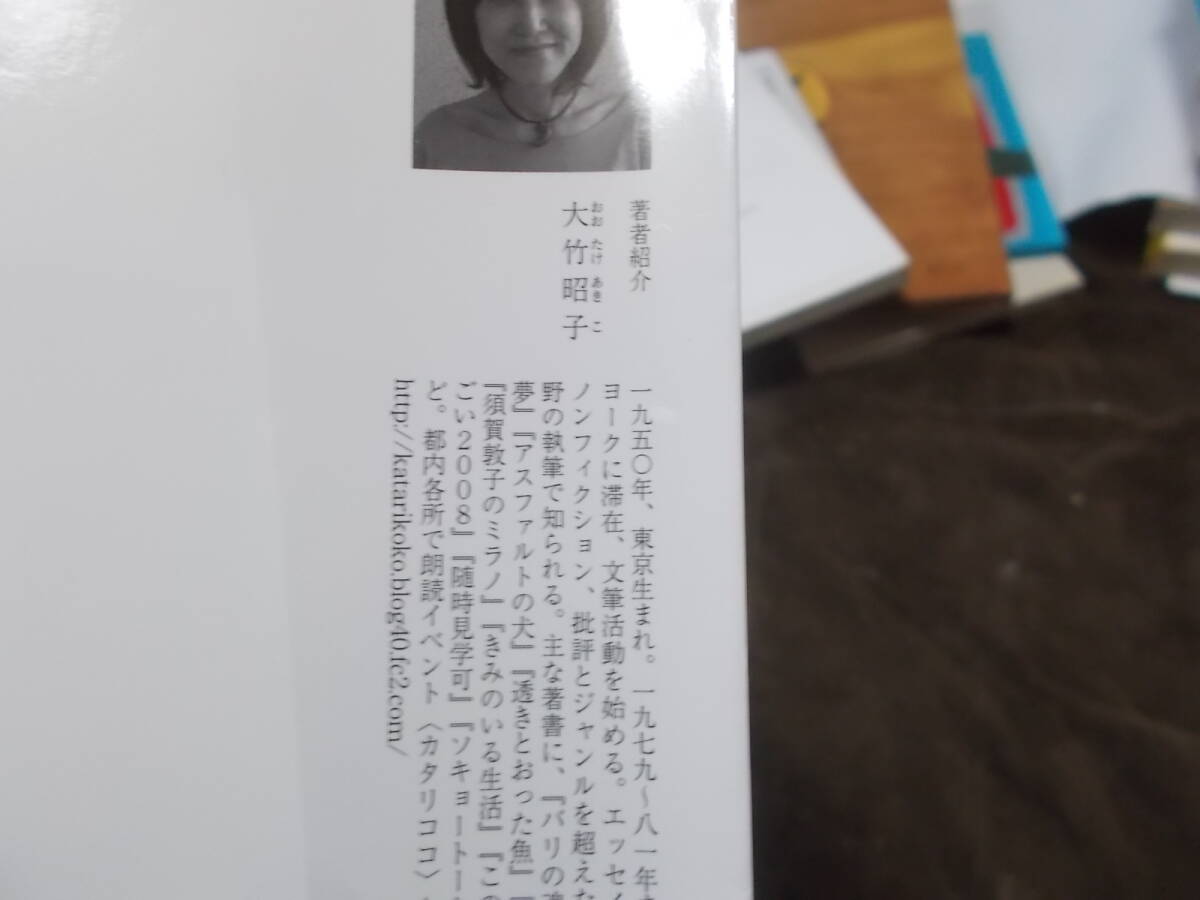 著者紹介
おおたけあきこ
大竹昭子
一九五〇年、東京生まれ。一九七九〜八一年
ヨークに滞在、文筆活動を始める。エッセイ
ノンフィクション、批評とジャンルを超えた
野の執筆で知られる。主な著書に、『バリの
夢』『アスファルトの犬』『透きとおった魚』『
『須賀敦子のミラノ』『きみのいる生活』『この
ごい2008』『随時見学可』『ソキョートー
ど。都内各所で朗読イベント〈カタリココ〉
http://katarikoko.blog40.fc2.com/